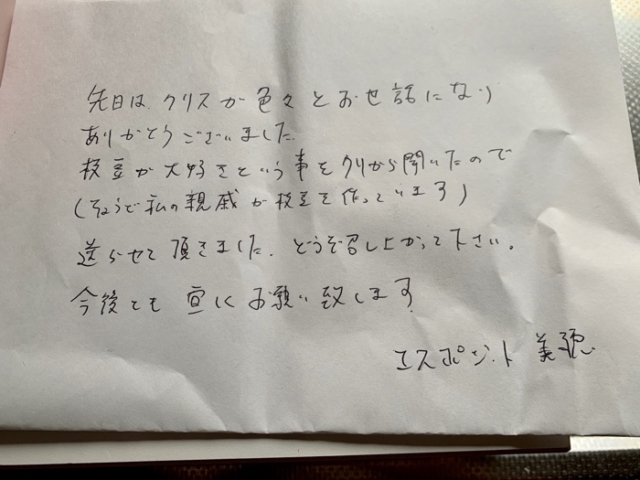 先日は、クリスが色々とお世話になり
ありがとうございました。
枝豆が大好きという事をクリから聞いたので
(そうで私の親戚が枝豆を作っています)
送らせて頂きました。どうぞ召し上がって下さい。
今後とも宜しくお願い致します。
エスポジト 美